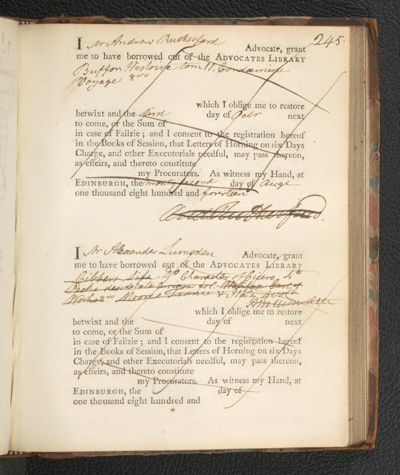 245.
I Mr Andrew Rutherfurd Advocate, grant
me to have borrowed out of the ADVOCATES LIBRARY
Buffon Histoire tom 11. Condamine
Voyage 8vo
which I oblige me to restore
betwixt and the day of next
to come, or the Sum of
in case of Failzie; and I consent to the registration hereof
in the Books of Session, that Letters of Horning on six Days
Charge, and other Executorials needful, may pass thereon,
as effeirs, and thereto constitute
my Procurators. As witness my Hand, at
EDINBURGH, the twenty second day of Augt
one thousand eight hundred and fourteen
And Rutherfurd.
I Mr Alexander Lumsden Advocate, grant
me to have borrowed out of the ADVOCATES LIBRARY
Cibbers Life & Character of Cicero, 4o
which I oblige me to restore
betwixt and the day of next
to come, or the Sum of
in case of Failzie; and I consent to the registration hereof
in the Books of Session, that Letters of Horning on six Days
Charge, and other Executorials needful, may pass thereon,
as effeirs, and thereto constitute
my Procurators. As witness my Hand, at
EDINBURGH, the day of
one thousand eight hundred and